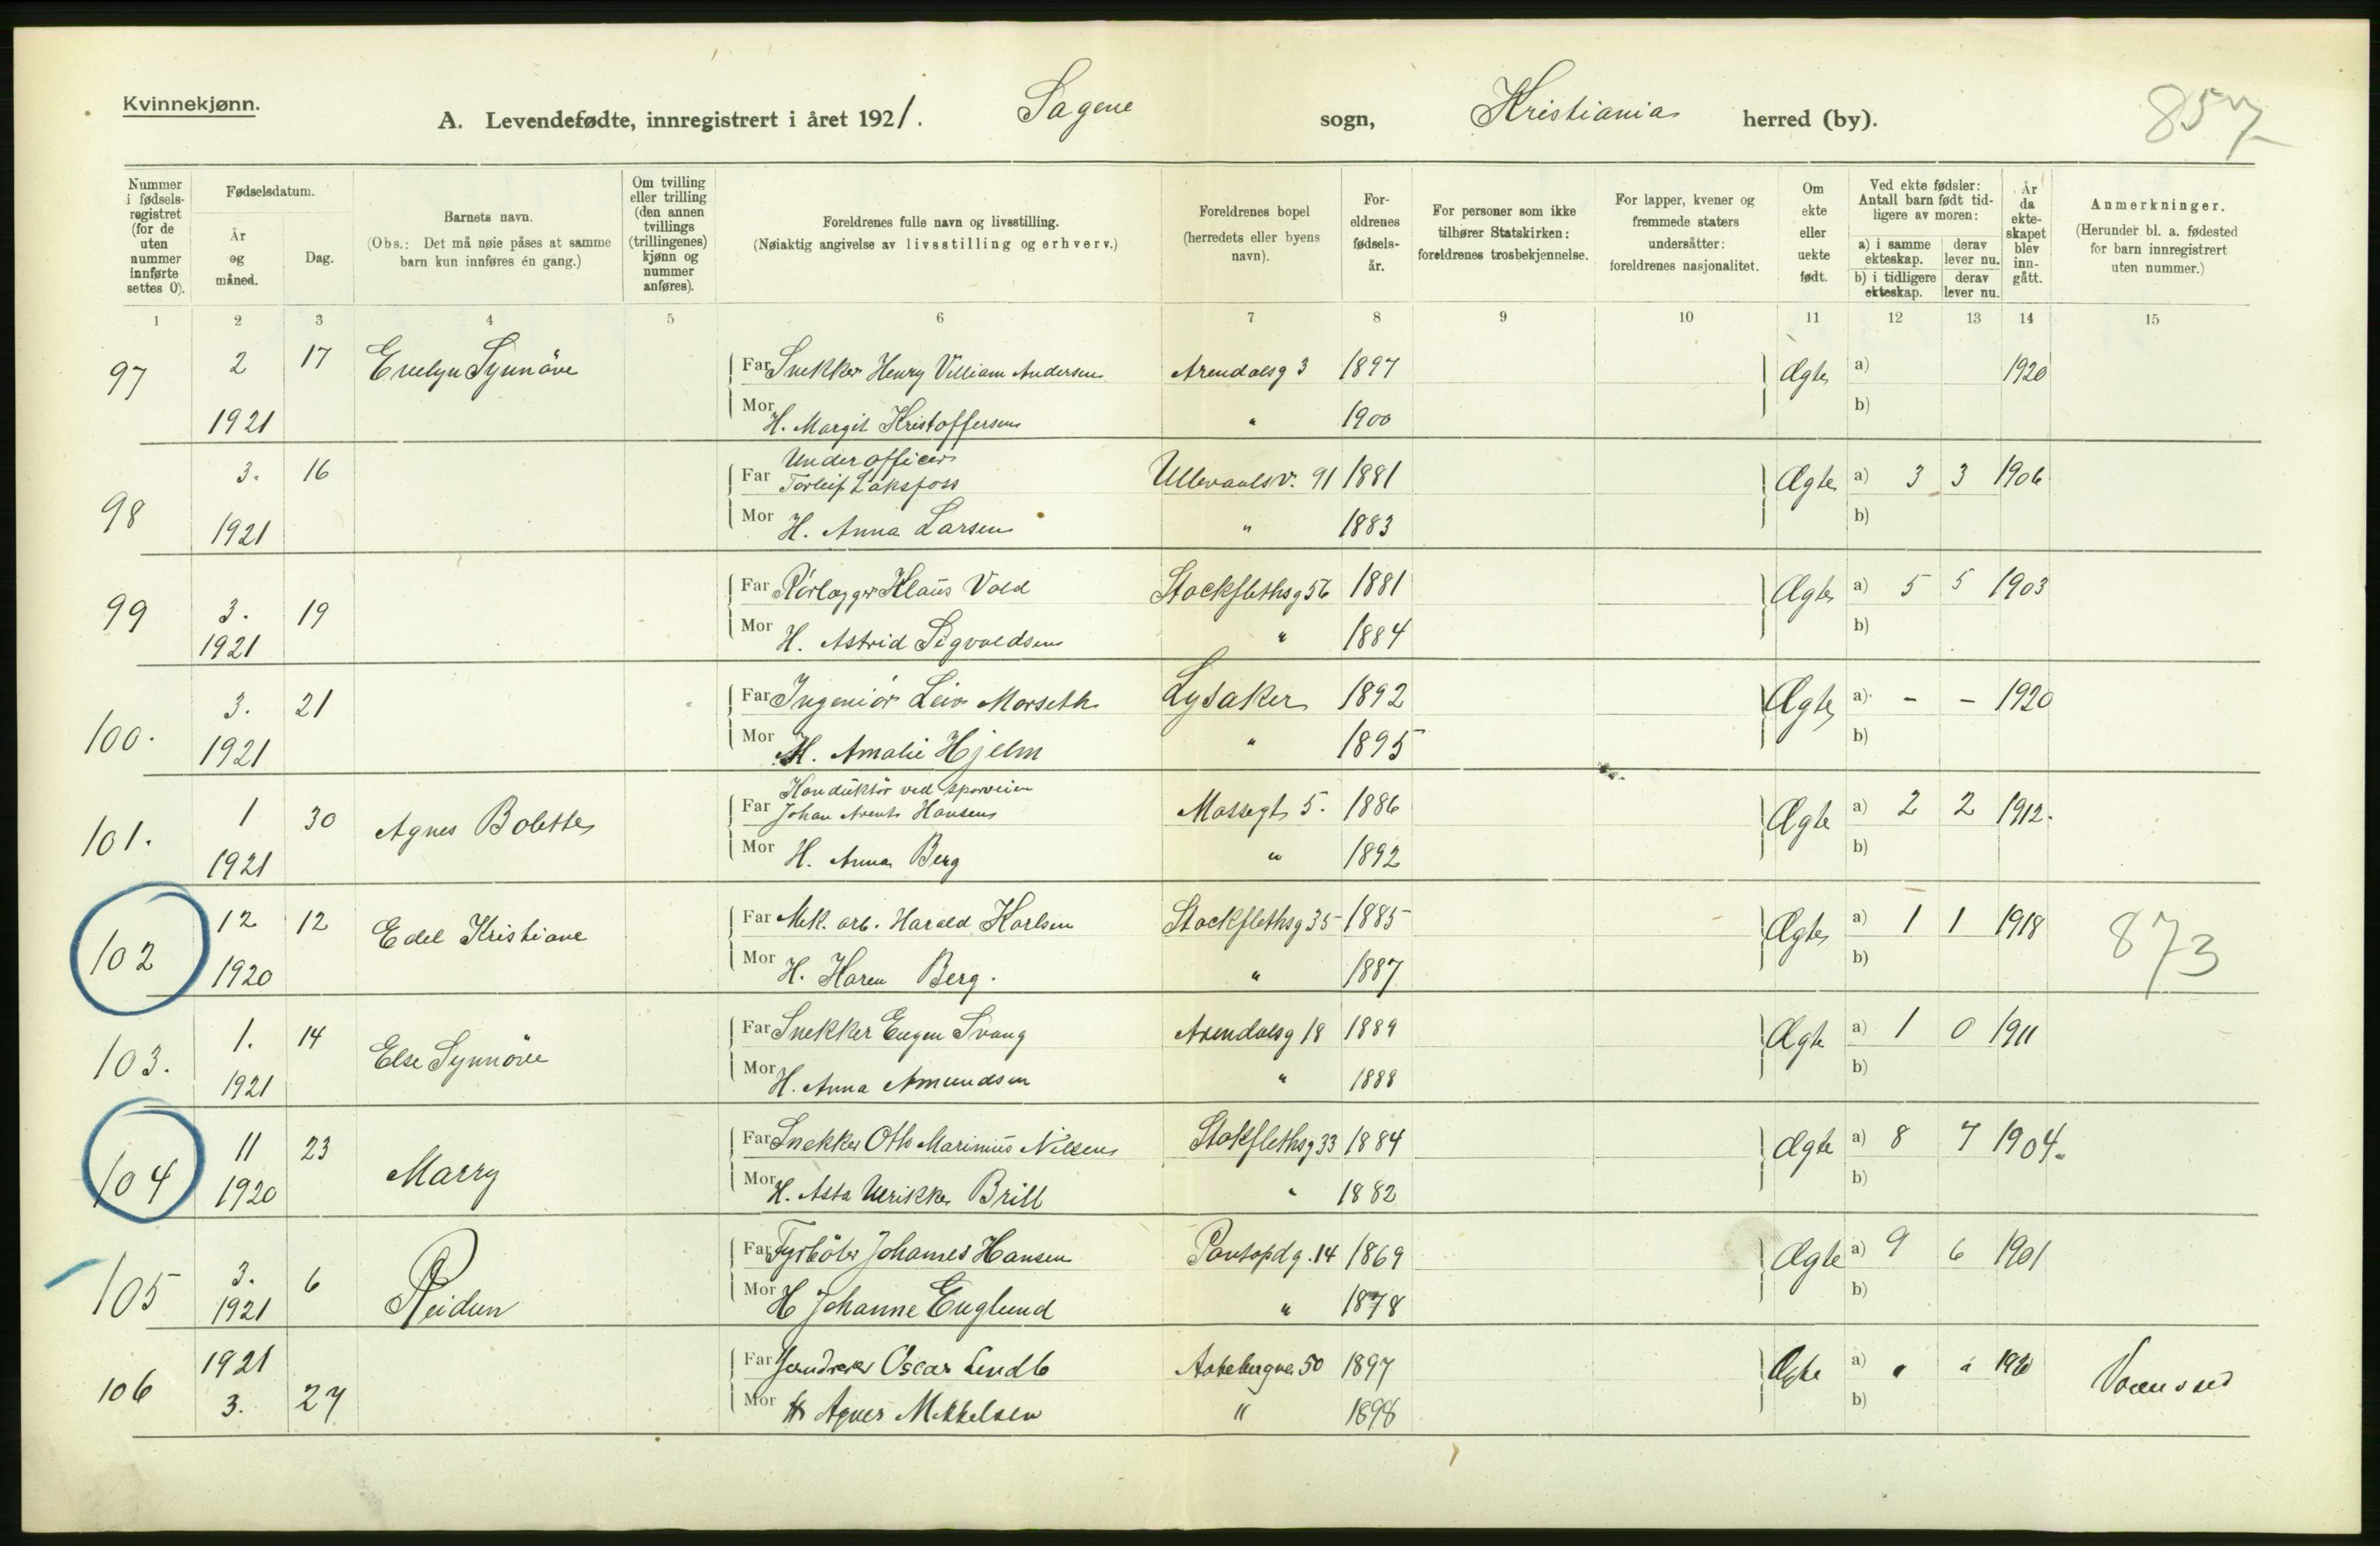 Kvinnekjønn.
A. Levendefødte, innregistrert i året 1921. Sagene sogn, Kristiania herred (by). 857
Nummer i fødsels-registret (for de uten nummer innførte settes 0).
Fødselsdatum.
År og måned.
Dag.
Barnets navn.
(Obs.: Det må nøie påses at samme barn kun innføres én gang.)
Om tvilling eller trilling (den annen tvillings (trillingenes) kjønn og nummer anføres).
Foreldrenes fulle navn og livsstilling.
(Nøiaktig angivelse av livsstilling og erhverv.)
Foreldrenes bopel (herredets eller byens navn).
For-eldrenes fødsels-år.
For personer som ikke tilhører Statskirken: foreldrenes trosbekjennelse.
For lapper, kvener og fremmede staters undersåtter: foreldrenes nasjonalitet.
Om ekte eller uekte født.
Ved ekte fødsler: Antall barn født tid-ligere av moren:
a) i samme ekteskap. derav lever nu.
b) i tidligere ekteskap. derav lever nu.
År da ekte-skapet blev inn-gått.
Anmerkninger.
(Herunder bl. a. fødested for barn innregistrert uten nummer.)
1 2 3 4 5 6 7 8 9 10 11 12 13 14 15
97 2 17 Evelyn Synnöve Far Snekker Henry Villiam Andersen Arendalsg 3 1897 Ægte a) 1920
1921 Mor H. Margit Kristoffersen " 1900 b)
Underofficer
98 3. 16 Far Torleif Laksfoss Ullevaalsv. 91 1881 Ægte a) 3 3 1906
1921 Mor H. Anna Larsen " 1883 b)
99 3. 19 Far Rörlægger Klaus Vold Stockflethsg 56 1881 Ægte a) 5 5 1903
1921 Mor H. Astrid Sigvaldsen " 1884 b)
100. 3. 21 Far Ingeniör Leiv Morseth Lysaker 1892 Ægte a) - - 1920
1921 Mor H. Amalie Hjelm " 1895 b)
Konduktör ved sporveien
101. 1 30 Agnes Bolette Far Johan Arent Hansen Mossegt 5. 1886 Ægte a) 2 2 1912.
1921 Mor H. Anna Berg " 1892 b)
102 12 12 Edel Kristiane Far Mek. arb. Harald Karlsen Stockflethsg 35 1885 Ægte a) 1 1 1918 873
1920 Mor H. Karen Berg. " 1887 b)
103. 1. 14 Else Synnöve Far Snekker Eugen Svang Arendalsg 18 1889 Ægte a) 1 0 1911
1921 Mor H. Anna Amundsen " 1888 b)
104 11 23 Marry Far Snekker Otto Marinius Nilsen Stokflethsg 33 1884 Ægte a) 8 7 1904.
1920 Mor H. Asta Ulrikke Brill " 1882 b)
105 3. 6 Reidun Far Fyrböter Johannes Hansen 14 1869 Ægte a) 9 6 1901
1921 Mor H Johanne Englund " 1878 b)
106 1921 Far Oscar Lindb 50 1897 Ægte a) " " 1920
3. 27 Mor H Agnes Mikkelsen " 1898 b)